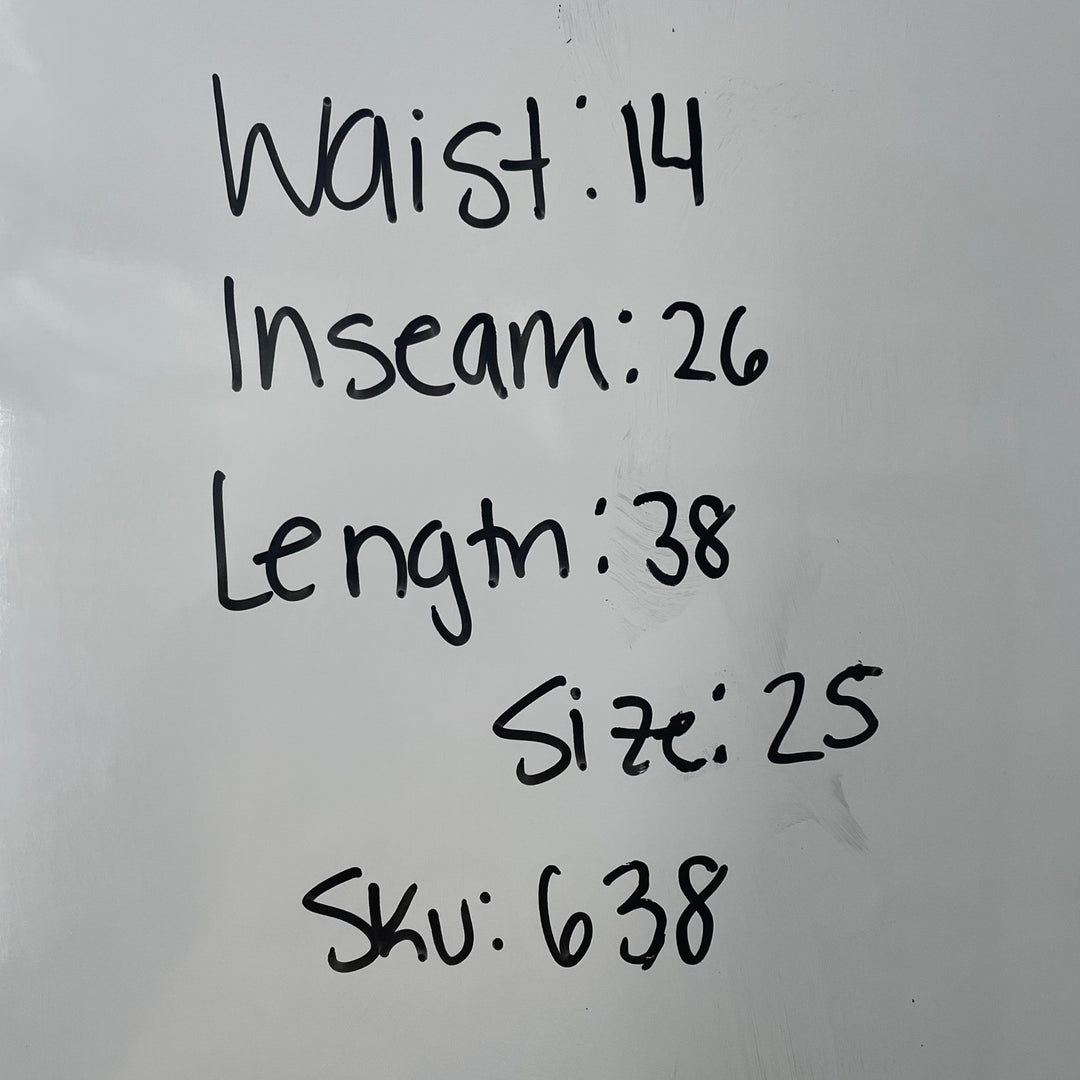 Waist: 14
Inseam: 26
Length: 38
Size: 25
Sku: 638